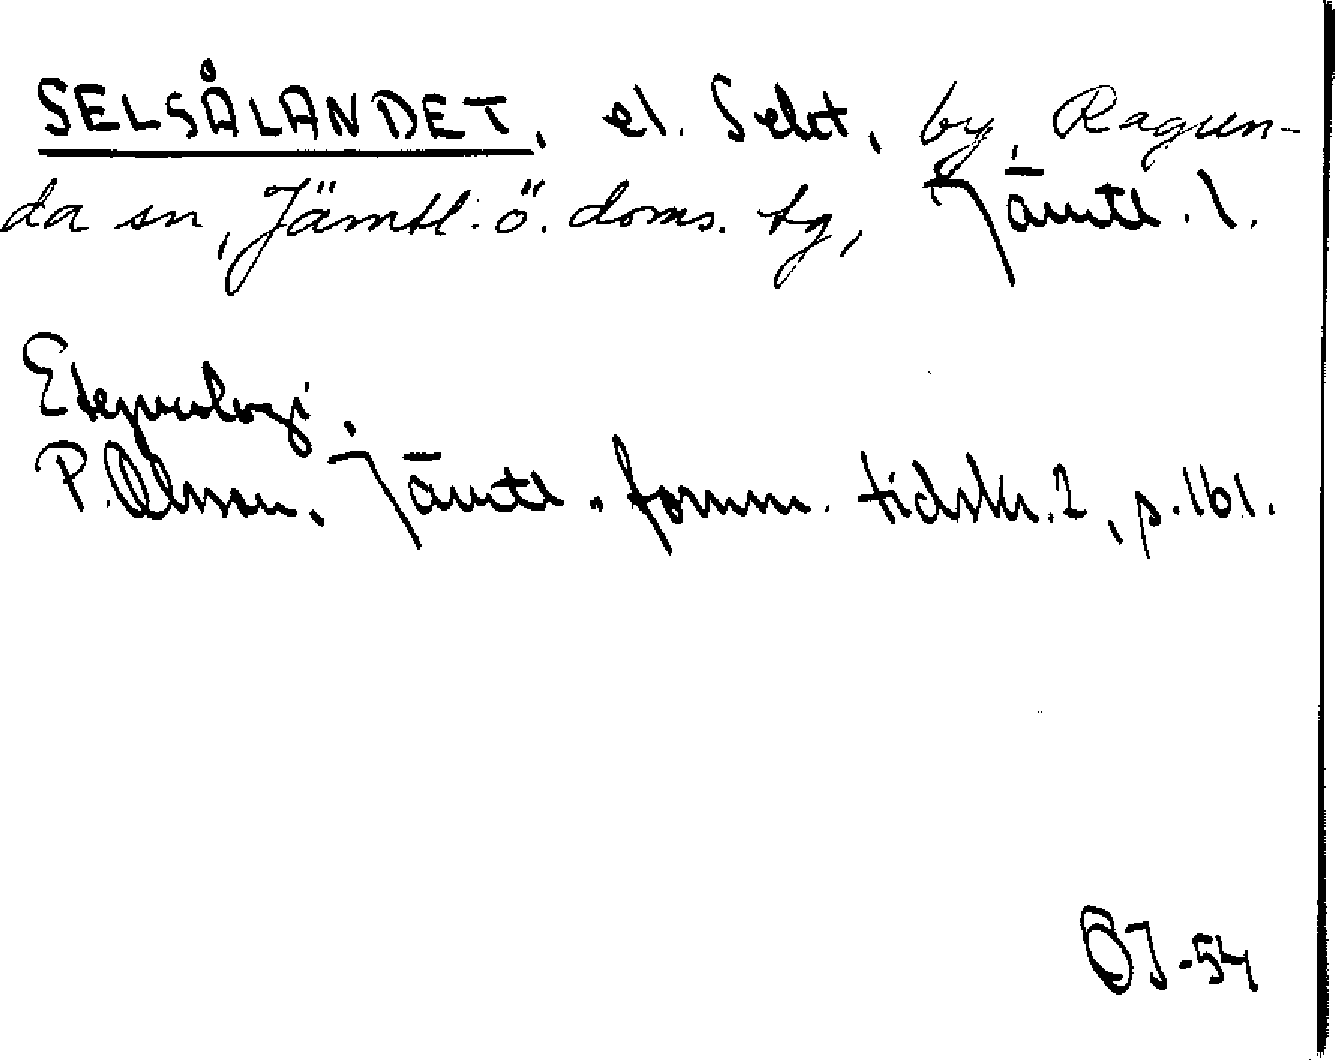 SELSÅLANDET, el. Selet, by, Ragun-
da sn, Jämtl. ö. doms. tg, Jämtl. l.
Etymologi.
P. Olsson. Jämtl. fornm. tidskr. 2, p. 161.
ÖJ-54